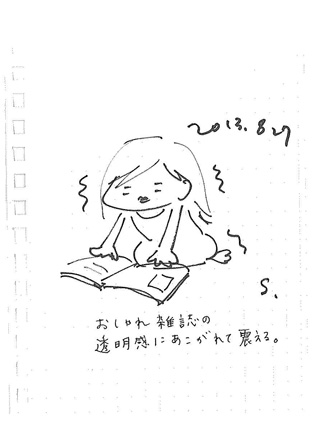 2013.8.27
S.
おしゃれ雑誌の
透明感にあこがれて震える。